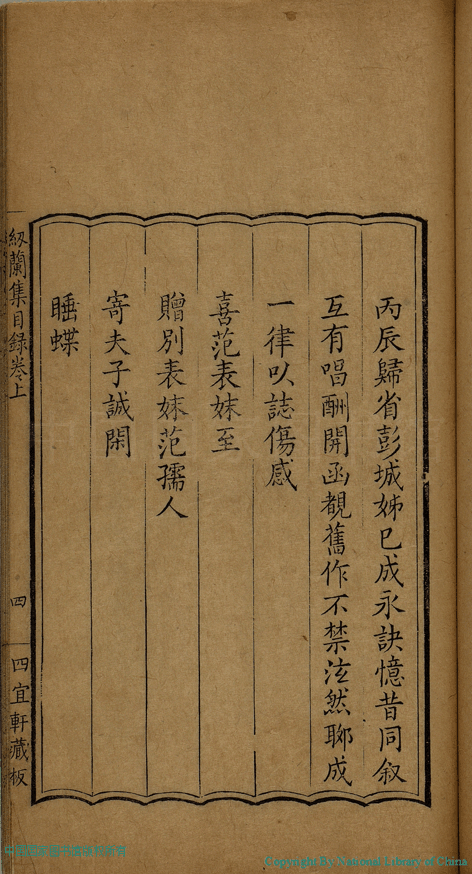 丙辰歸省彭城姊已成永訣憶昔同叙
互有唱酬開函覩舊作不禁泫然聊成
一律以誌傷感
喜范表妹至
贈別表妹范孺人
寄夫子誠閑
睡蝶
紉蘭集目錄卷上
四
四宜軒藏板
Copyright By National Library of China